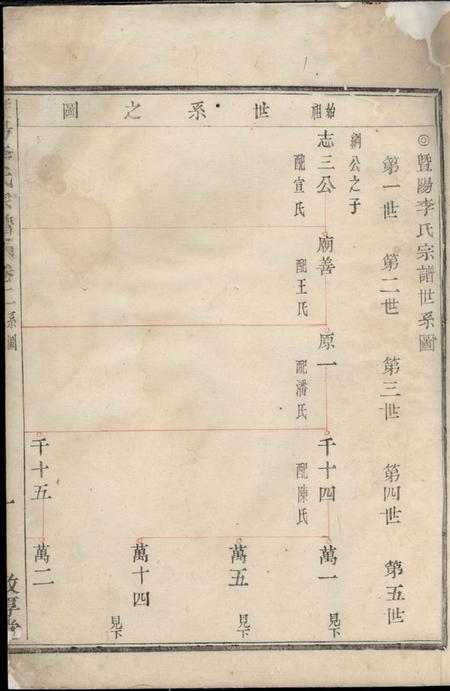 始祖世系之圖
◎暨陽李氏宗譜世系圖
第一世
第二世
第三世
第四世
第五世
綱公之子
志三公
配宣氏
廟善
配王氏
原一
配潘氏
千十四
配陳氏
萬一
見下
萬五
見下
萬十四
見下
千十五
萬二
系圖
一